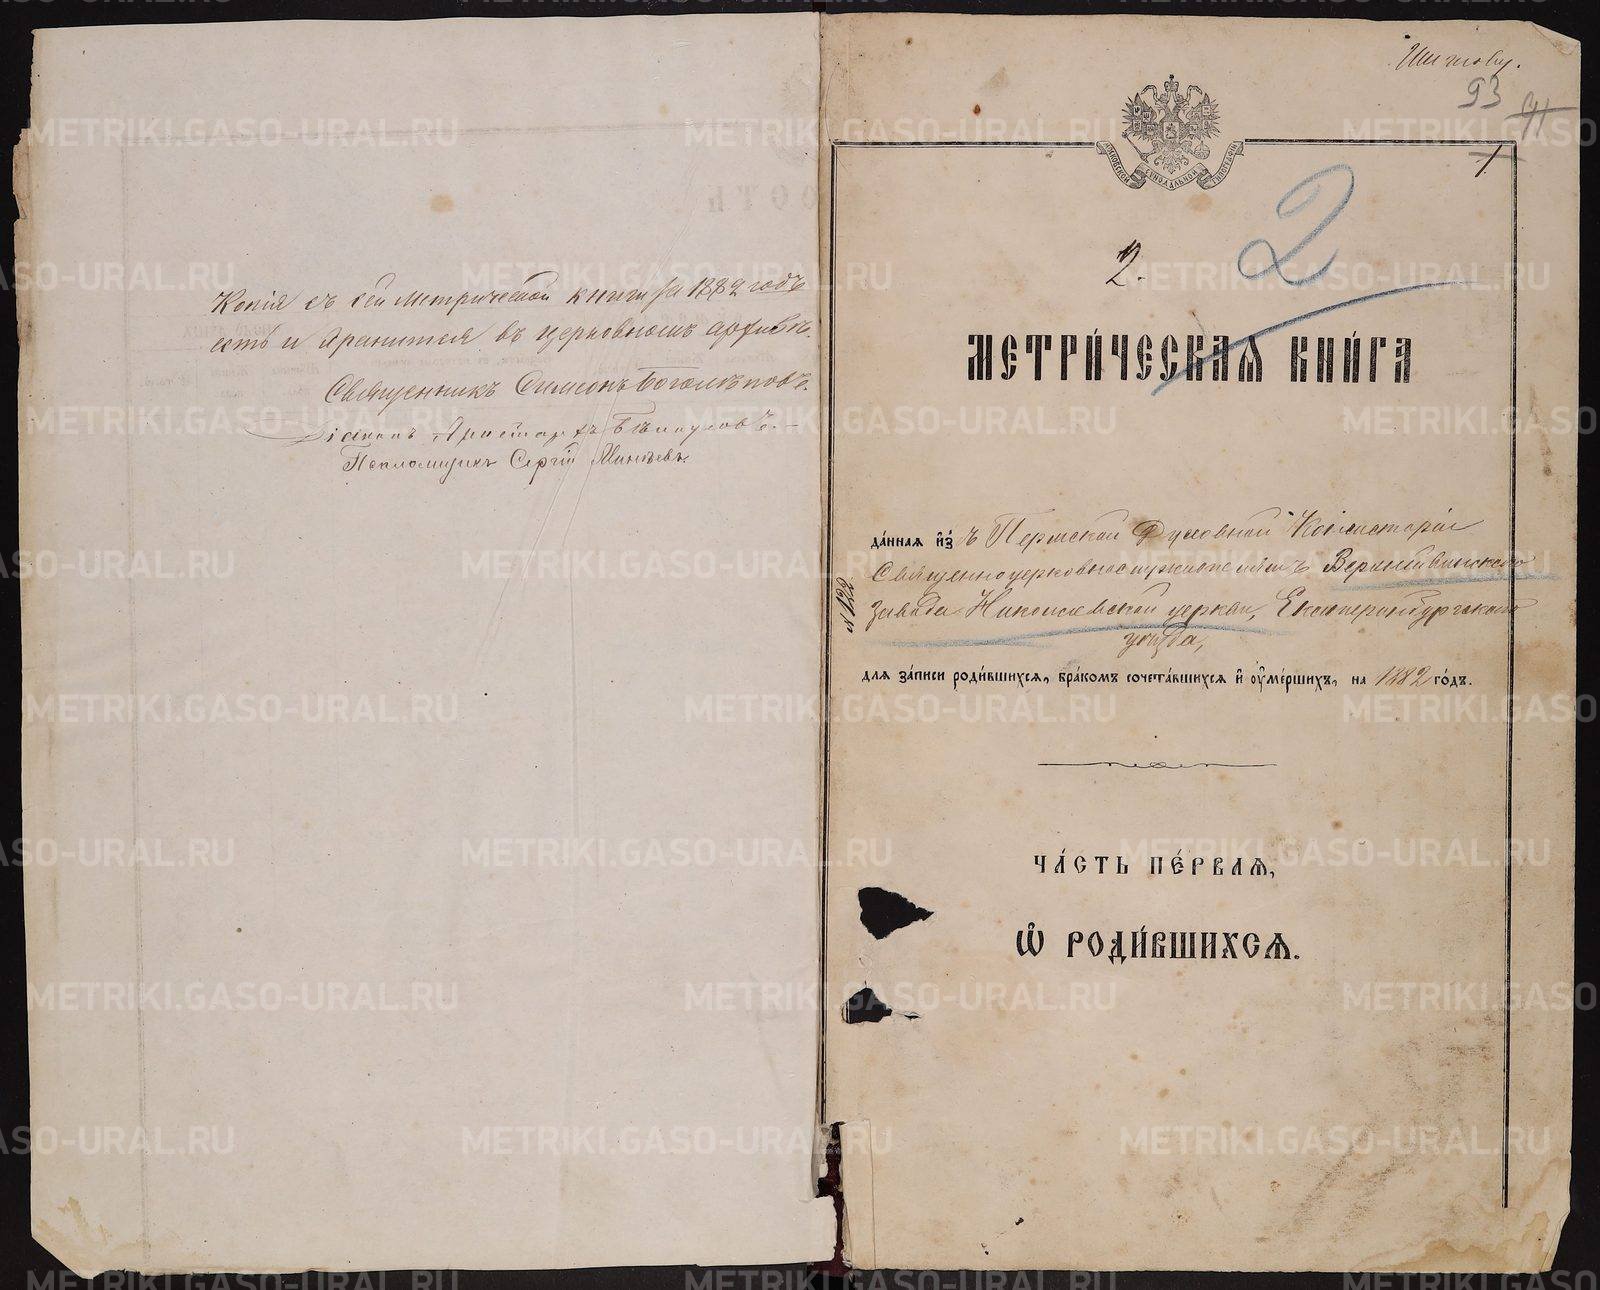 Копія съ сей метрической книги за 1882 годъ
есть и хранится въ церковномъ архивѣ.
Священникъ Симеонъ Боголѣповъ.
Діаконъ Аристархъ
Псаломщикъ Сергій Минѣевъ.
93
91
1
МОСКОВСКОЙ СѴНОДАЛЬНОЙ ТИПОГРАФІИ
2.
2
МЕТРИ́ЧЕСКАѦ КНИ́ГА
да́нная и҆з̾ъ Пермской Духовной Консисторіи
Священноцерковнослужителямъ Верхнейвинскаго
завода Николаевской церкви, Екатеринбургскаго
уѣзда,
№ 122
для за́писи роди́вшихся, бра́комъ сочета́вшихся и҆ ѹ҆ме́ршихъ, на 1882 го́дъ.
ЧА́СТЬ ПЕ́РВАѦ,
Ѽ РОДИ́ВШИХСѦ.
METRIKI.GASO-URAL.RU